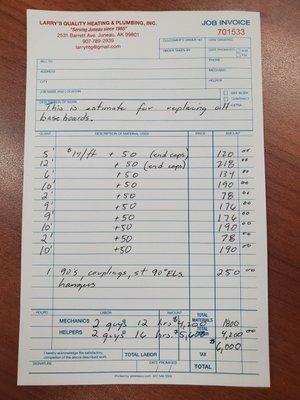 LARRY'S QUALITY HEATING & PLUMBING, INC.
"Serving Juneau since 1985"
2531 Barrett Ave. Juneau, AK 99801
907-789-2939
JOB INVOICE
701533
CUSTOMER'S ORDER NO. DATE ORDERED
ORDER TAKEN BY DATE PROMISED A.M. P.M.
BILL TO PHONE
ADDRESS MECHANIC
CITY HELPER
JOB NAME AND LOCATION DAY WORK
CONTRACT
DESCRIPTION OF WORK EXTRA
This is estimate for replacing all
baseboards.
QUANT. DESCRIPTION OF MATERIAL USED PRICE AMOUNT
5' $14/ft + 50 (end caps) 120 00
12' + 50 (end caps) 218 00
6' + 50 134 00
10' + 50 190 00
2' + 50 78 00
9' + 50 176 00
9' + 50 176 00
10' + 50 190 00
2' + 50 78 00
10' + 50 190 00
1 90's, couplings, st 90° ELs 250 00
hangers
HOURS LABOR AMOUNT TOTAL MATERIALS 1800
MECHANICS 2 guys 12 hrs.
HELPERS 2 guys 16 hrs. TOTAL LABOR 4,200
$6,000
I hereby acknowledge the satisfactory
completion of the above described work. TOTAL LABOR TAX
SIGNATURE DATE PROMISED TOTAL